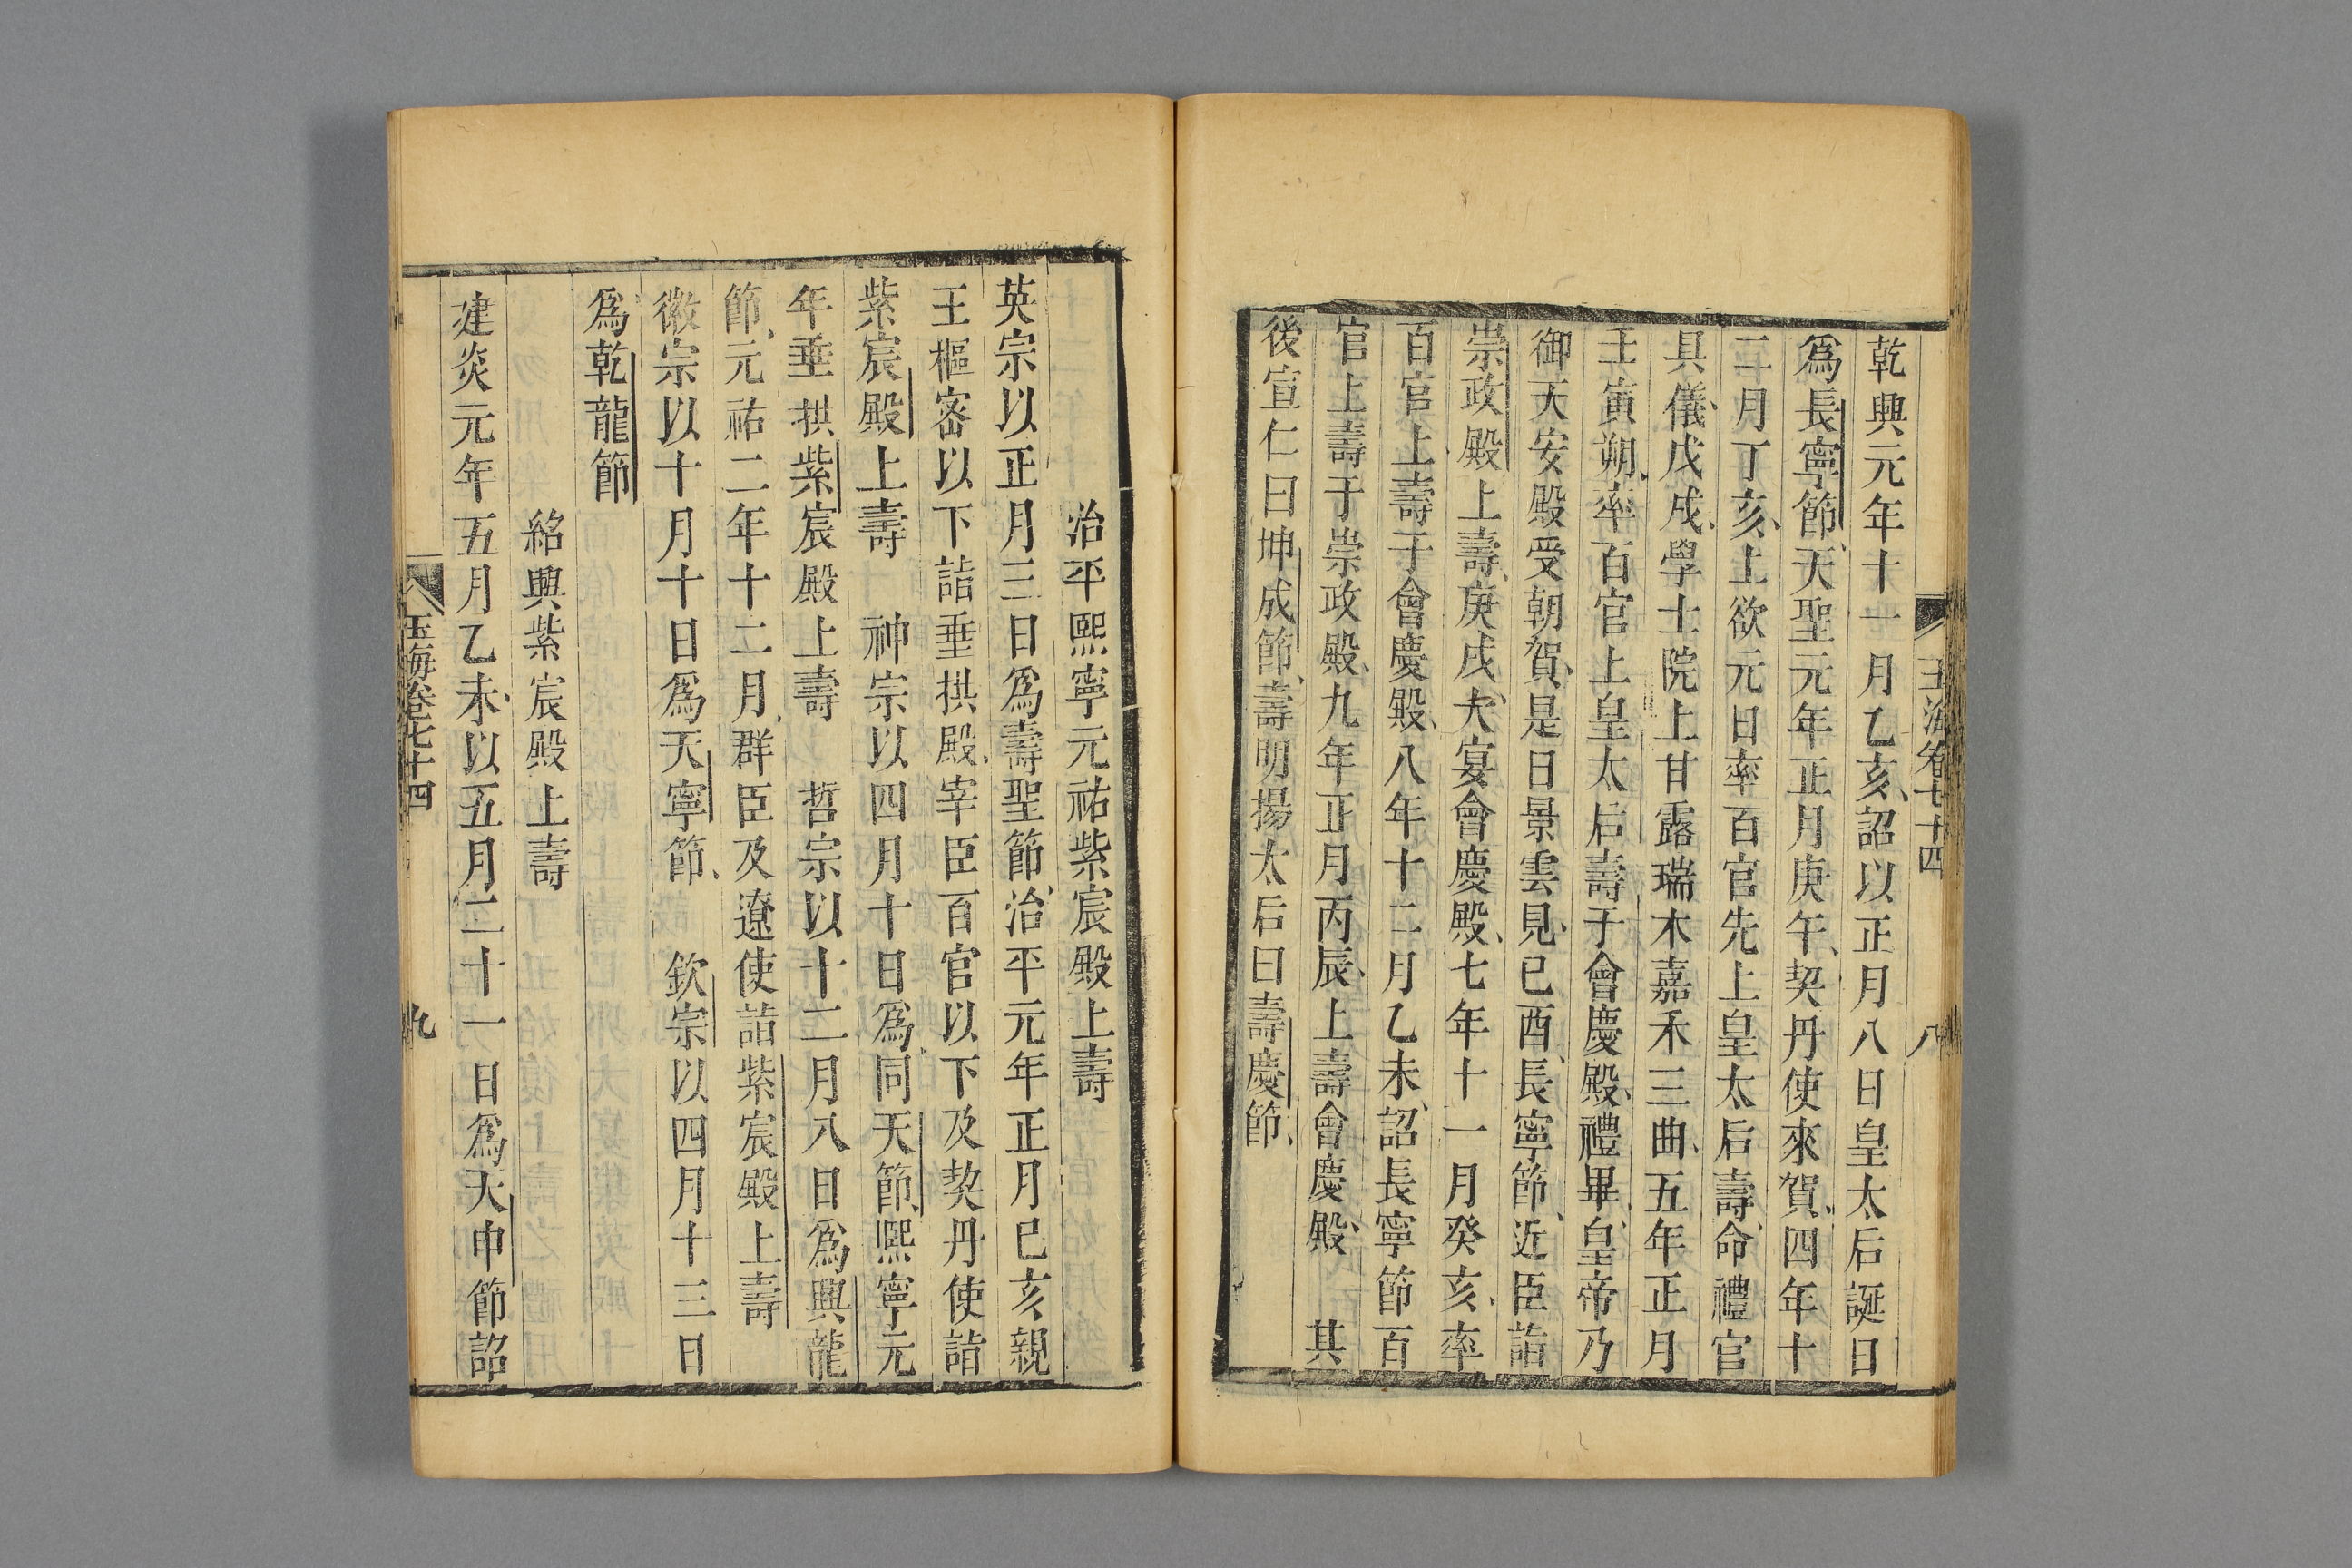 玉海卷七十四 八
乾興元年十一月乙亥、詔以正月八日皇太后誕日
爲長寧節、天聖元年正月庚午、契丹使來賀、四年十
二月丁亥、上欲元日率百官先上皇太后壽、命禮官
具儀、戊戌、學士院上甘露瑞木嘉禾三曲、五年正月
壬寅朔、率百官上皇太后壽于會慶殿、禮畢、皇帝乃
御天安殿受朝賀、是日景雲見、己酉、長寧節、近臣詣
崇政殿上壽、庚戌、大宴會慶殿、七年十一月癸亥、率
百官上壽于會慶殿、八年十二月乙未、詔長寧節百
官上壽于崇政殿、九年正月丙辰、上壽會慶殿、 其
後宣仁曰坤成節、壽明揚太后曰壽慶節、
治平熙寧元祐紫宸殿上壽
英宗以正月三日爲壽聖節、治平元年正月己亥親
王樞密以下詣垂拱殿、宰臣百官以下及契丹使詣
紫宸殿上壽 神宗以四月十日爲同天節、熙寧元
年垂拱紫宸殿上壽 哲宗以十二月八日爲興龍
節、元祐二年十二月、群臣及遼使詣紫宸殿上壽
徽宗以十月十日爲天寧節、 欽宗以四月十三日
爲乾龍節
紹興紫宸殿上壽
建炎元年五月乙未、以五月二十一日爲天申節詔
玉海卷七十四 九